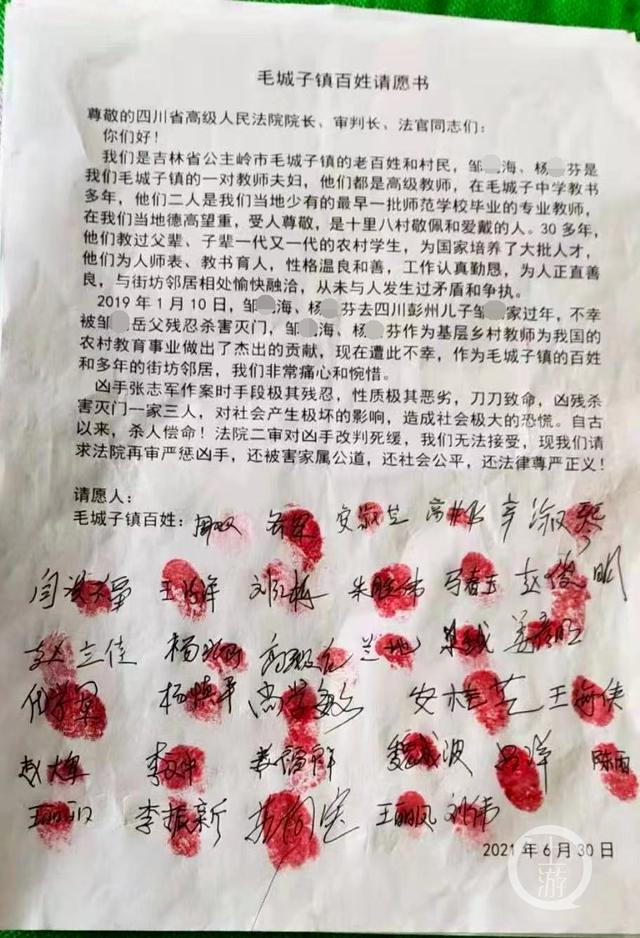 毛城子镇百姓请愿书
尊敬的四川省高级人民法院院长、审判长、法官同志们：
你们好！
我们是吉林省公主岭市毛城子镇的老百姓和村民，邹 海、杨 芬是
我们毛城子镇的一对教师夫妇，他们都是高级教师，在毛城子中学教书
多年，他们二人是我们当地少有的最早一批师范学校毕业的专业教师，
在我们当地德高望重，受人尊敬，是十里八村敬佩和爱戴的人。30 多年，
他们教过父辈、子辈一代又一代的农村学生，为国家培养了大批人才，
他们为人师表、教书育人，性格温良和善，工作认真勤恳，为人正直善
良，与街坊邻居相处愉快融洽，从未与人发生过矛盾和争执。
2019 年 1 月 10 日，邹 海、杨 芬去四川彭州儿子邹 家过年，不幸
被邹 岳父残忍杀害灭门，邹 海、杨 芬作为基层乡村教师为我国的
农村教育事业做出了杰出的贡献，现在遭此不幸，作为毛城子镇的百姓
和多年的街坊邻居，我们非常痛心和惋惜。
凶手张志军作案时手段极其残忍，性质极其恶劣，刀刀致命，凶残杀
害灭门一家三人，对社会产生极坏的影响，造成社会极大的恐慌。自古
以来，杀人偿命！法院二审对凶手改判死缓，我们无法接受，现我们请
求法院再审严惩凶手，还被害家属公道，还社会公平，还法律尊严正义！
请愿人：
毛城子镇百姓：安淑兰
刘红梅 朱胜伟 马春玉 赵俊明
赵立佳
安桂芝 王海侠
陈雨
李振新 王丽凤 刘伟
2021 年 6 月 30 日
上游